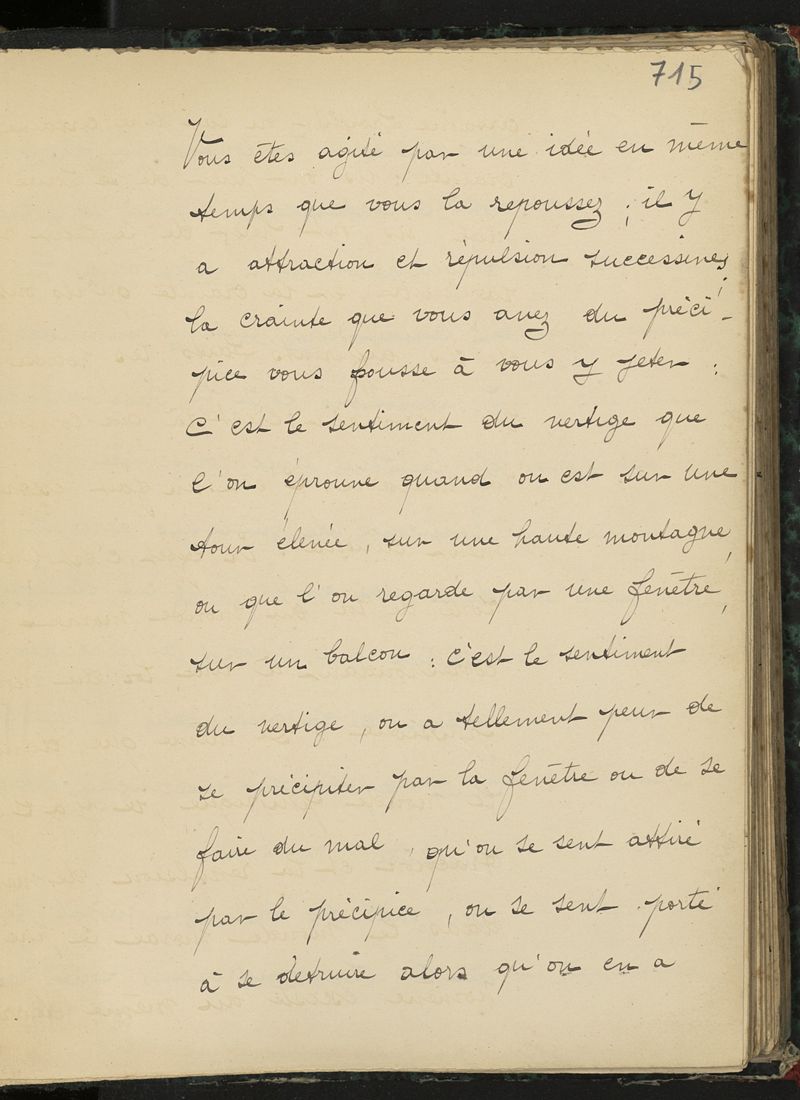 715
Vous êtes agité par une idée en même
temps que vous la repoussez ; il y
a attraction et répulsion successives ;
la crainte que vous avez du préci-
pice vous pousse à vous y jeter :
C'est le sentiment du vertige que
l'on éprouve quand on est sur une
tour élevée, sur une haute montagne,
ou que l'on regarde par une fenêtre,
sur un balcon : c'est le sentiment
du vertige, on a tellement peur de
se précipiter par la fenêtre ou de se
faire du mal, qu'on se sent attiré
par le précipice, on se sent porté
à se détruire alors qu'on en a